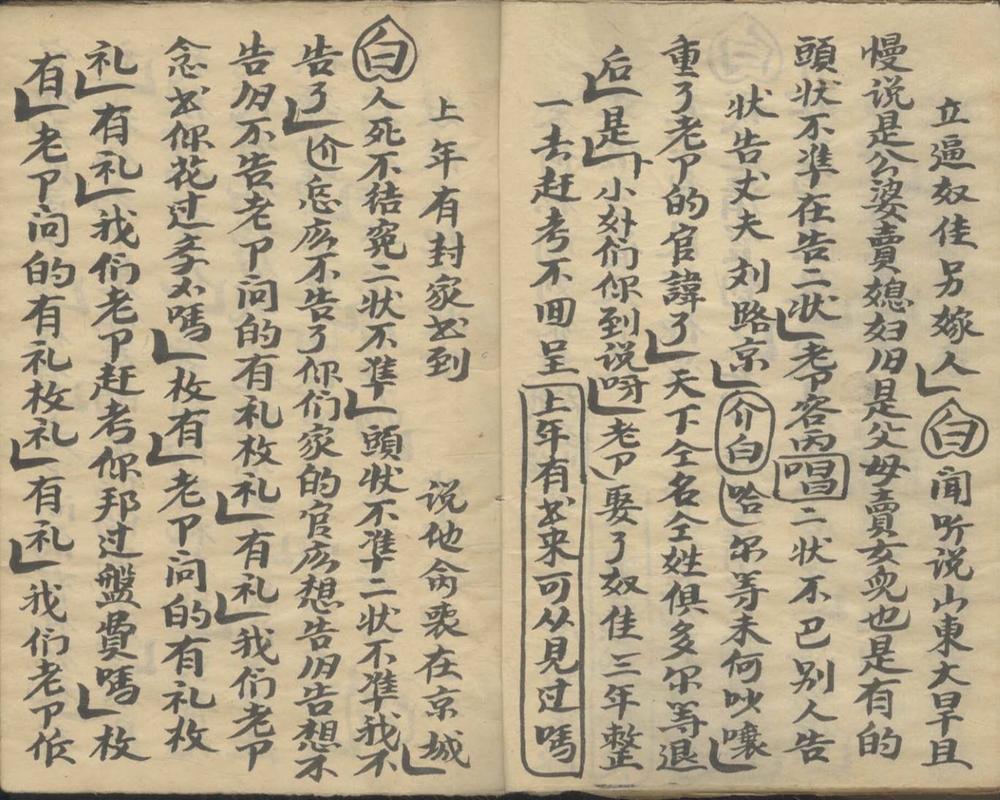 立逼奴佳另嫁人 白 闻听说山東大旱且
慢说是公婆賣媳妇旧是父母賣女児也是有的
頭状不準在告二状 老下容丙 唱 二状不巴別人告
状告丈夫刘路京 介白 哈 尔等未何吵嚷
重了老下的官諱了 天下仝名仝姓俱多尔等退
后 是 小外们你到说呀 老下娶了奴佳三年整
一去赶考不囬呈 上年有书来可从见过嗎
上年有封家书到 说他命丧在京城
白 人死不结冤二状不準 頭状不準二状不準我不
告了 价 怎広不告了你们家的官広想告旧告想不
告旧不告老下问的有礼枚礼 有礼 我们老下
念书你花过多少嗎 枚有 老下问的有礼枚
礼 有礼 我们老下赶考你邦过盤費嗎 枚
有 老下问的有礼枚礼 有礼 我们老下